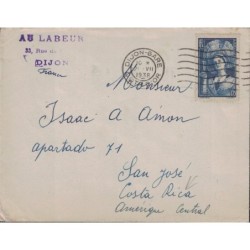 AU LABEUR
33, Rue
DIJON
France
DIJON-GARE
1936
Monsieur
Isaac A Amon
apartado 71
San José
Costa Rica
Amerique Central